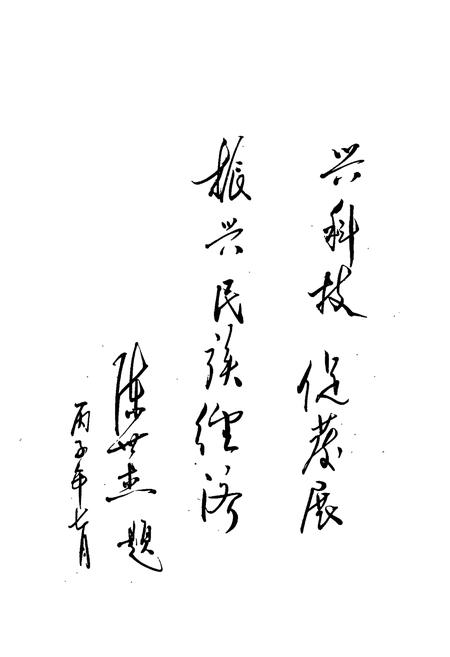 兴科技 促发展
振兴民族经济
陈世杰题
丙子年七月